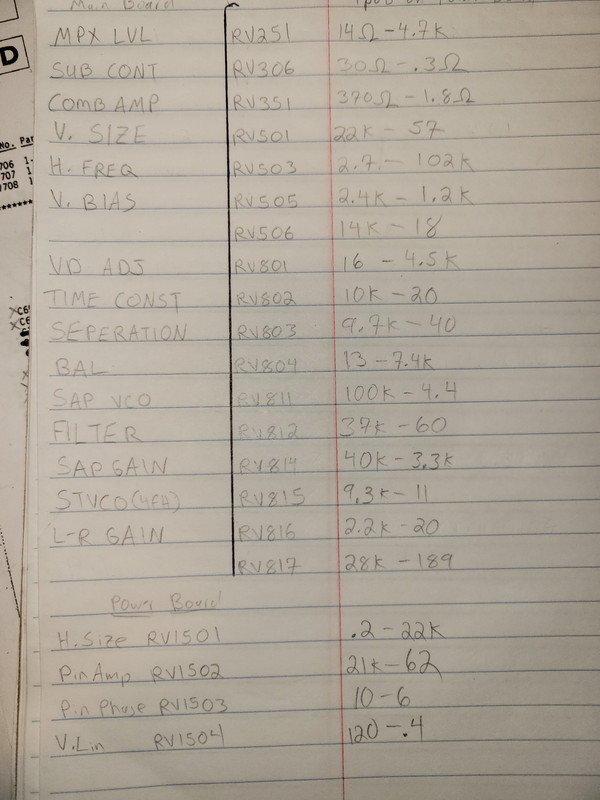 Main Board
MPX LVL RV251 14Ω - 4.7K
SUB CONT RV306 30Ω - .3Ω
COMB AMP RV351 370Ω - 1.8Ω
V. SIZE RV501 22K - 57
H. FREQ RV503 2.7 - 102K
V. BIAS RV505 2.4K - 1.2K
RV506 14K - 18
VD ADJ RV801 16 - 4.5K
TIME CONST RV802 10K - 20
SEPERATION RV803 9.7K - 40
BAL RV804 13 - 7.4K
SAP VCO RV811 100K - 4.4
FILTER RV812 37K - 60
SAP GAIN RV814 40K - 3.3K
STVCO(4FH) RV815 9.3K - 11
L-R GAIN RV816 2.2K - 20
RV817 28K - 189
Power Board
H. Size RV1501 .2 - 22K
Pin Amp RV1502 21K - 62
Pin Phase RV1503 10 - 6
V. Lin RV1504 120 - .4
D
No. Par
706 1
707 1
708 1